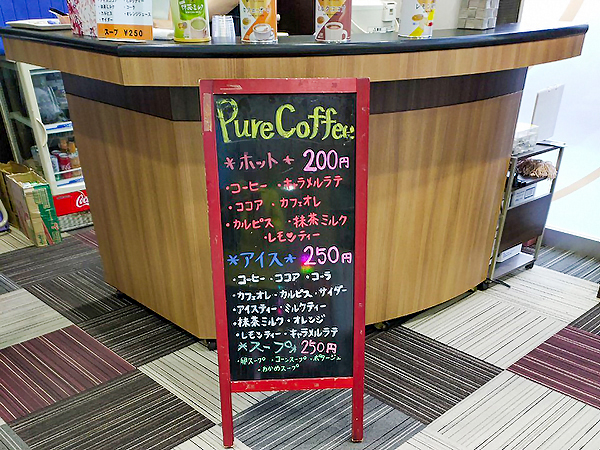 スープ ¥250
Pure Coffee
*ホット* 200円
・コーヒー ・キャラメルラテ
・ココア ・カフェオレ
・カルピス ・抹茶ミルク
・レモンティー
*アイス* 250円
・コーヒー・ココア・コーラ
・カフェオレ・カルピス・サイダー
・アイスティー・ミルクティー
・抹茶ミルク・オレンジ
・レモンティー・キャラメルラテ
*スープ* 250円
・卵スープ ・コーンスープ ・ポタージュ
・わかめスープ